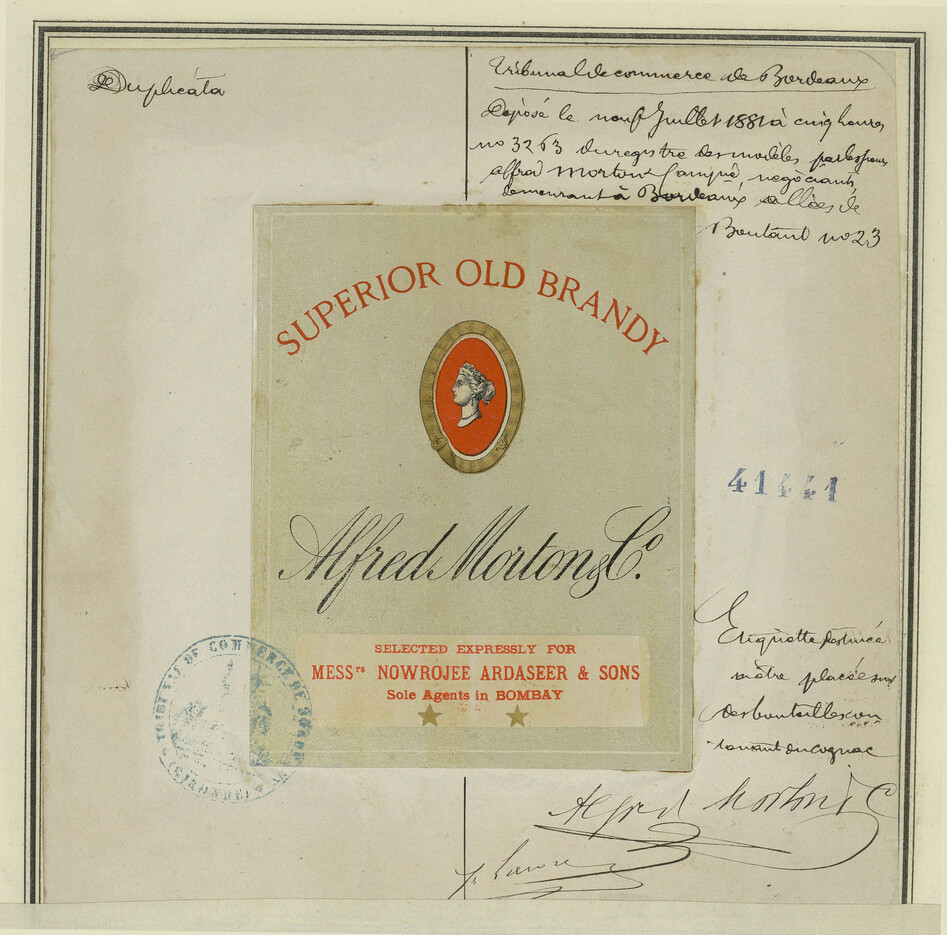 Duplicata
Tribunal de commerce de Bordeaux
Déposé le neuf Juillet 1881 à cinq heures
no 3263 du registre des modèles par les sieurs
Alfred Morton & Compie, négociants,
demeurant à Bordeaux, allées de
Boutaut no 23
SUPERIOR OLD BRANDY
41441
Alfred Morton & Co.
Etiquette destinée
à être placée sur
des bouteilles con
tenant du cognac
SELECTED EXPRESSLY FOR
MESSrs NOWROJEE ARDASEER & SONS
Sole Agents in BOMBAY
TRIBUNAL DE COMMERCE DE BORDEAUX
(GIRONDE)
Alfred Morton & C